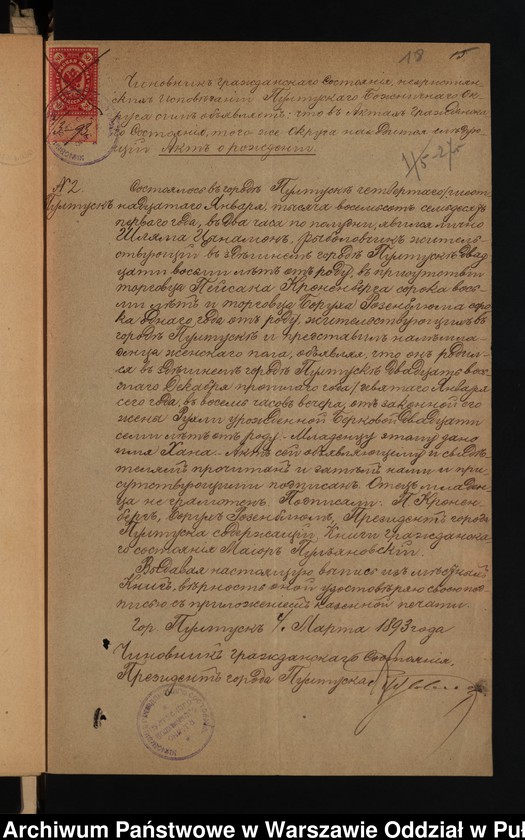 18 15
Чиновникъ гражданскаго Состоянія, нехристіан-
скихъ Исповѣданій Пултускаго Божничнаго Ок-
руга симъ объявляетъ: что въ Актахъ Гражданска-
го Состоянія, того же Округа находится слѣдую-
щій Актъ о рожденіи.
№ 2. Состоялось въ городѣ Пултускѣ четвертаго/шест-
Пултускъ надцатаго Января тысяча восемьсотъ семьдесядъ
перваго года, въ два часа по полудни, явился лично
Шляма Цынамонъ, жителъ-
ствующій въ здѣшнемъ городѣ Пултускѣ двад-
цати восьми лѣтъ отъ роду, въ присутствіи
торговца Пейсака Кроненберга сорока вось-
ми лѣтъ и торговца Боруха Розенблюма соро-
ка однаго года отъ роду, жительствующихъ въ
городѣ Пултускѣ и представилъ намъ мла-
денца женскаго пола, объявляя, что онъ родил-
ся въ здѣшнемъ городѣ Пултускѣ двадцать вось-
маго Декабря прошлаго года/девятаго Января
сего года, въ восемь часовъ вечера, отъ законной его
жены урожденной Берковой двадцати
семи лѣтъ отъ роду. Младенцу этому дано
имя Хана. Актъ сей объявляющему и свидѣ-
телямъ прочитанъ и затѣмъ нами и при-
сутствующими подписанъ. Отецъ младен-
ца не грамотенъ. Подписали: П. Кронен-
бергъ, Борухъ Розенблюмъ, Президентъ города
Пултуска содержащій Книги гражданска-
го состоянія Маіоръ
Выдавая настоящую выпись изъ мѣстной
Книги, вѣрность оной удостовѣряю своею под-
писью съ приложеніемъ казенной печати.
Гор. Пултускъ Марта 1893 года
Чиновникъ Гражданскаго Состоянія,
Президентъ города Пултуска
Archiwum Państwowe w Warszawie Oddział w Puł